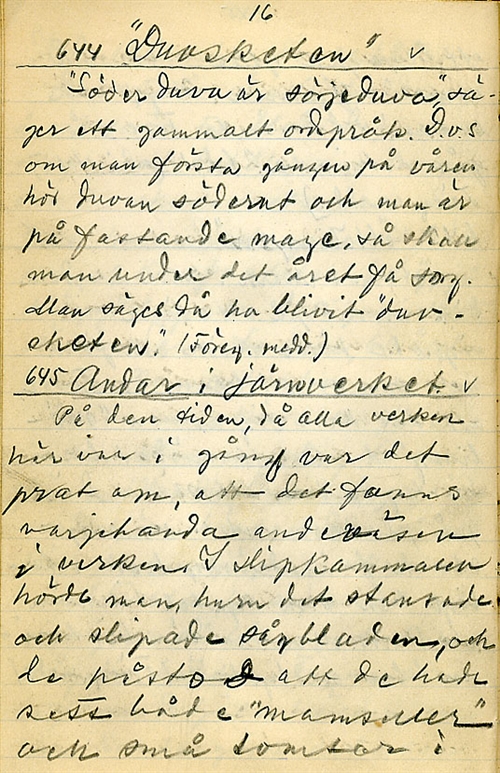 16
644 "Duvsketen" v
"Söder duva är sörjeduva", sä-
ger ett gammalt ordspråk. D.v.s
om man första gången på våren
hör duvan söderut och man är
på fastande mage, så skall
man under det året få sorg.
Man säges då ha blivit "duv-
sketen". (Föreg. medd.)
645 Andar i järnverket. v
På den tiden, då alla verken
här var i gång var det
prat om, att det fanns
varjehanda andeväsen
i verken. I slipkammaren
hörde man, huru det stansade
och slipade sågbladen, och
de påstod att de hade
sett både "mamseller"
och små tomtar i